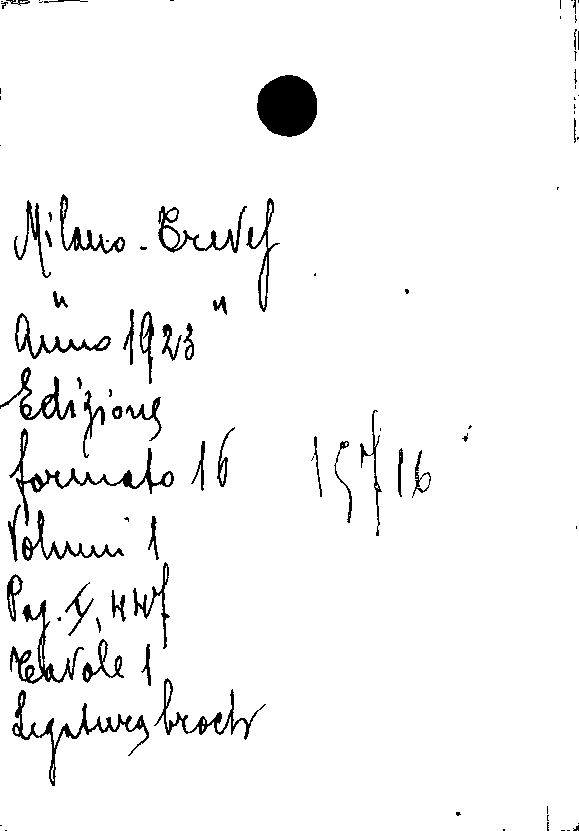 Milano - Treves
" "
Anno 1923
Edizione
formato 16 15716
Volumi 1
Pag. V, 447
Tavole 1
Legatura broch